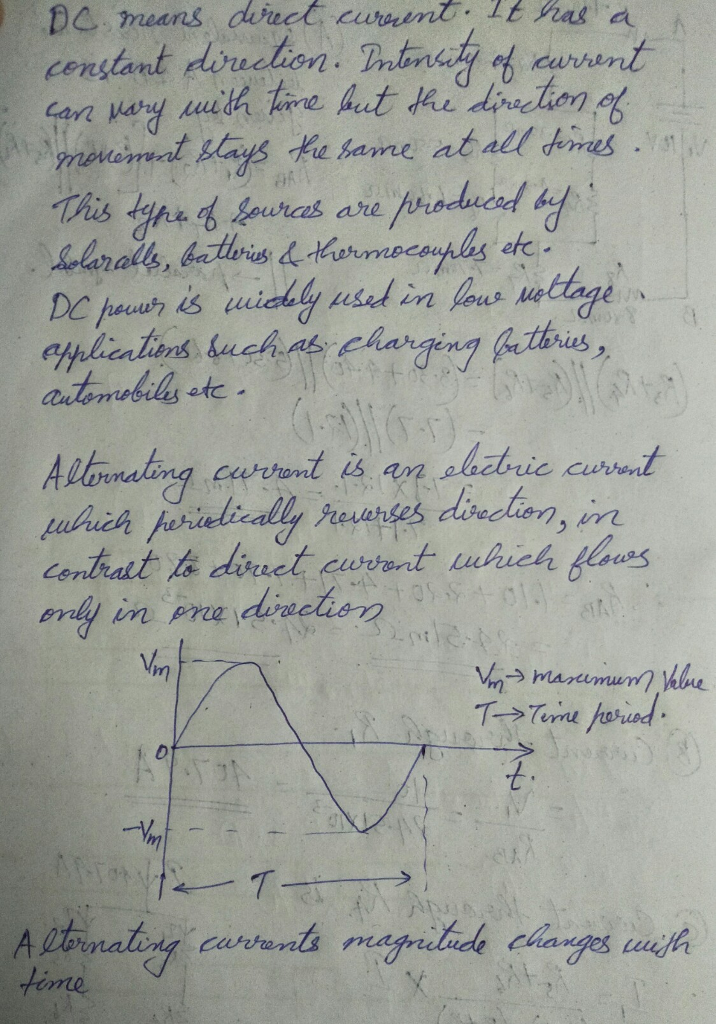 DC means direct current. It has a
constant direction. Intensity of current
can vary with time but the direction of
movement stays the same at all times.
This type of sources are produced by
Solarcells, batteries & thermocouples etc.
DC power is widely used in low voltage
applications such as charging batteries,
automobiles etc.
Alternating current is an electric current
which periodically reverses direction, in
contrast to direct current which flows
only in one direction
Vm
Vm → maximum Value
T → Time period.
0
t.
-Vm
T
Alternating currents magnitude changes with
time